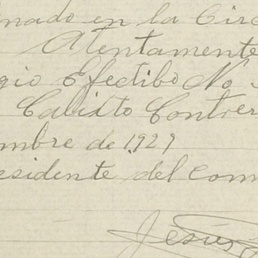 nado en la Circ
Atentamente
gio Efectibo No
Calixto Contrer
mbre de 1929
esidente del Com
Jesús